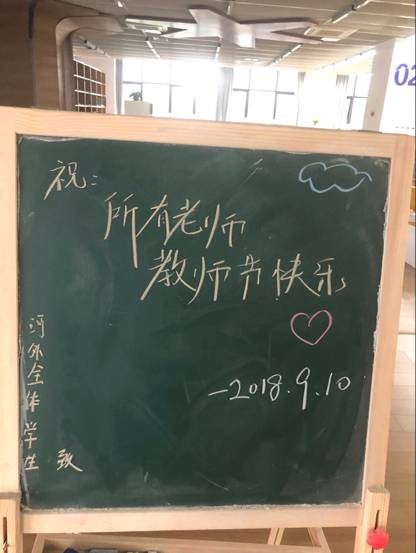 02
祝：
所有老师
教师节快乐
—2018.9.10
河外全体学生
致